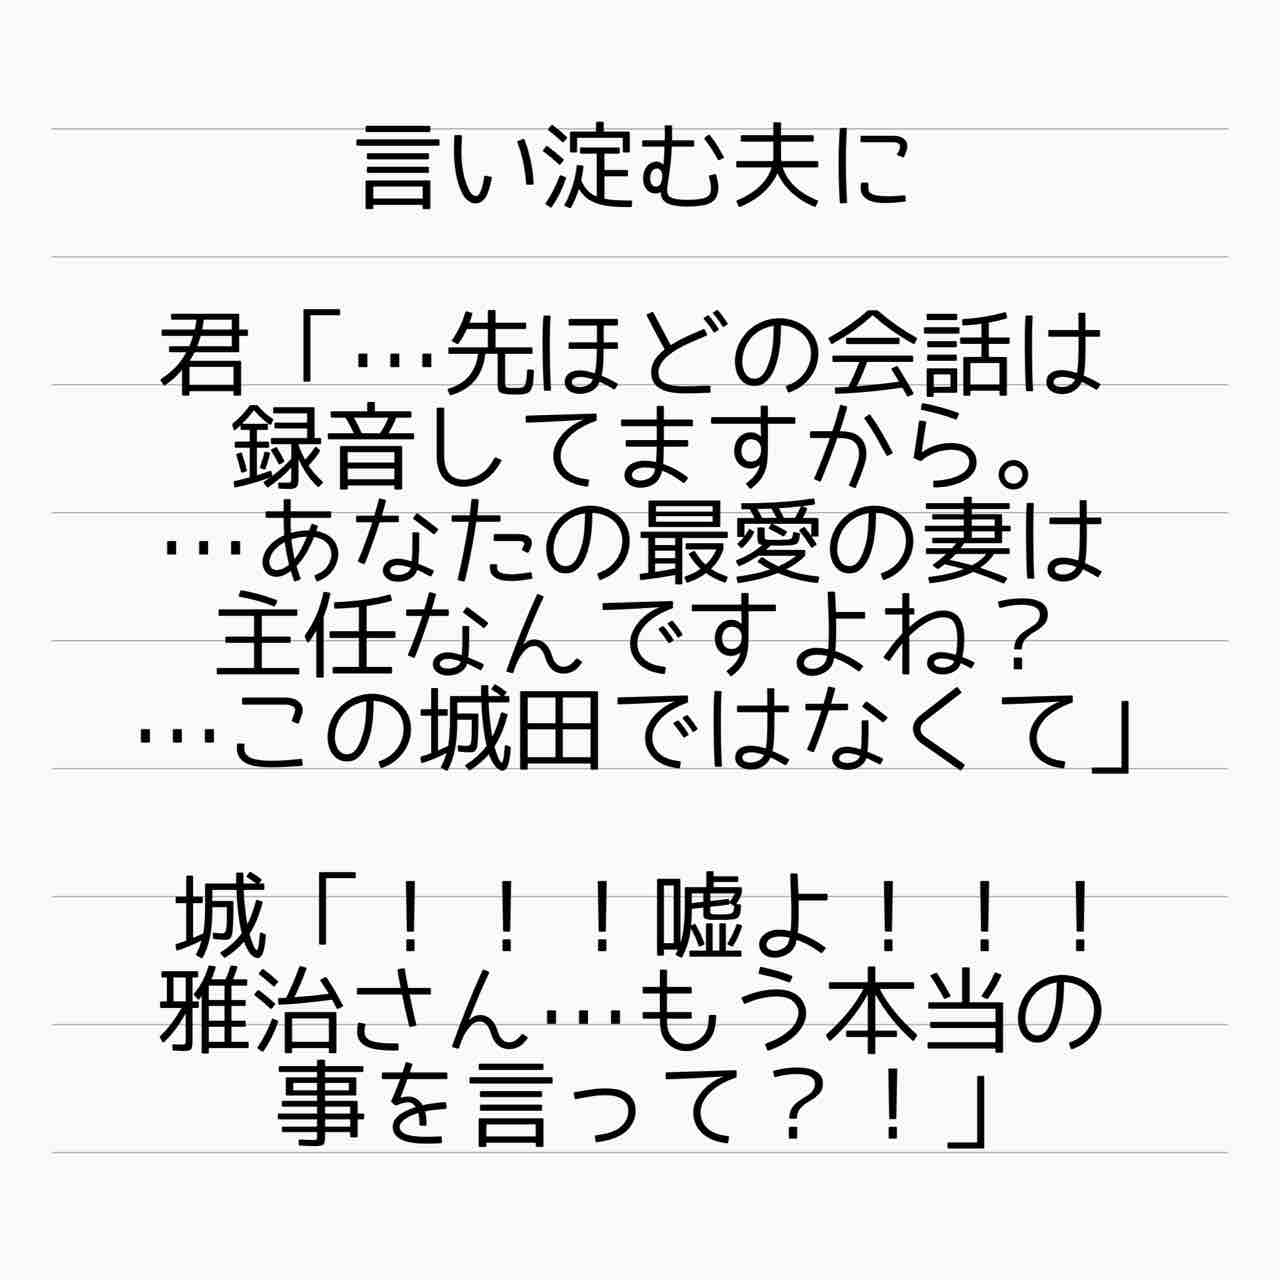 言い淀む夫に
君「…先ほどの会話は
録音してますから。
…あなたの最愛の妻は
主任なんですよね？
…この城田ではなくて」
城「！！！嘘よ！！！
雅治さん…もう本当の
事を言って？！」